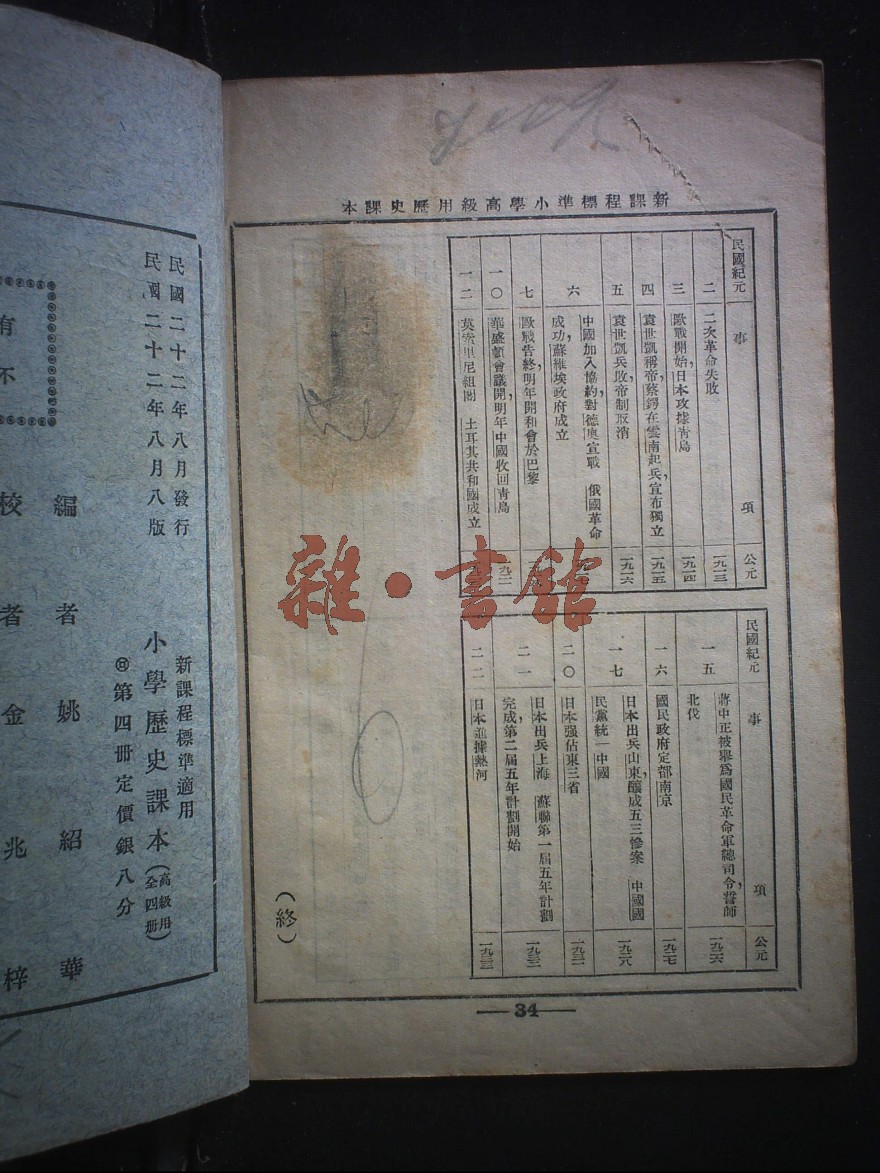 新課程標準小學高級用歷史課本
民國紀元 事 項 公元
二 二次革命失敗 一九一三
三 歐戰開始,日本攻據靑島 一九一四
四 袁世凱稱帝,蔡鍔在雲南起兵,宣布獨立 一九一五
五 袁世凱兵敗,帝制取消 一九一六
六 中國加入協約對德奧宣戰 俄國革命
成功,蘇維埃政府成立
七 歐戰告終,明年開和會於巴黎
一〇 華盛頓會議開,明年中國收回靑島
一二 莫索里尼組閣 土耳其共和國成立
民國紀元 事 項 公元
一五 蔣中正被舉爲國民革命軍總司令,誓師
北伐 一九二六
一六 國民政府定都南京 一九二七
一七 日本出兵山東,釀成五三慘案 中國國
民黨統一中國 一九二八
二〇 日本强佔東三省 一九三一
二一 日本出兵上海 蘇聯第一屆五年計劃
完成,第二屆五年計劃開始 一九三二
二二 日本進據熱河 一九三三
(終)
34
雜·書館
民國二十二年八月發行
民國二十二年八月八版
新課程標準適用
小學歷史課本(高級用全四册)
第四册定價銀八分
編者 姚紹華
校者 金兆梓
有
不